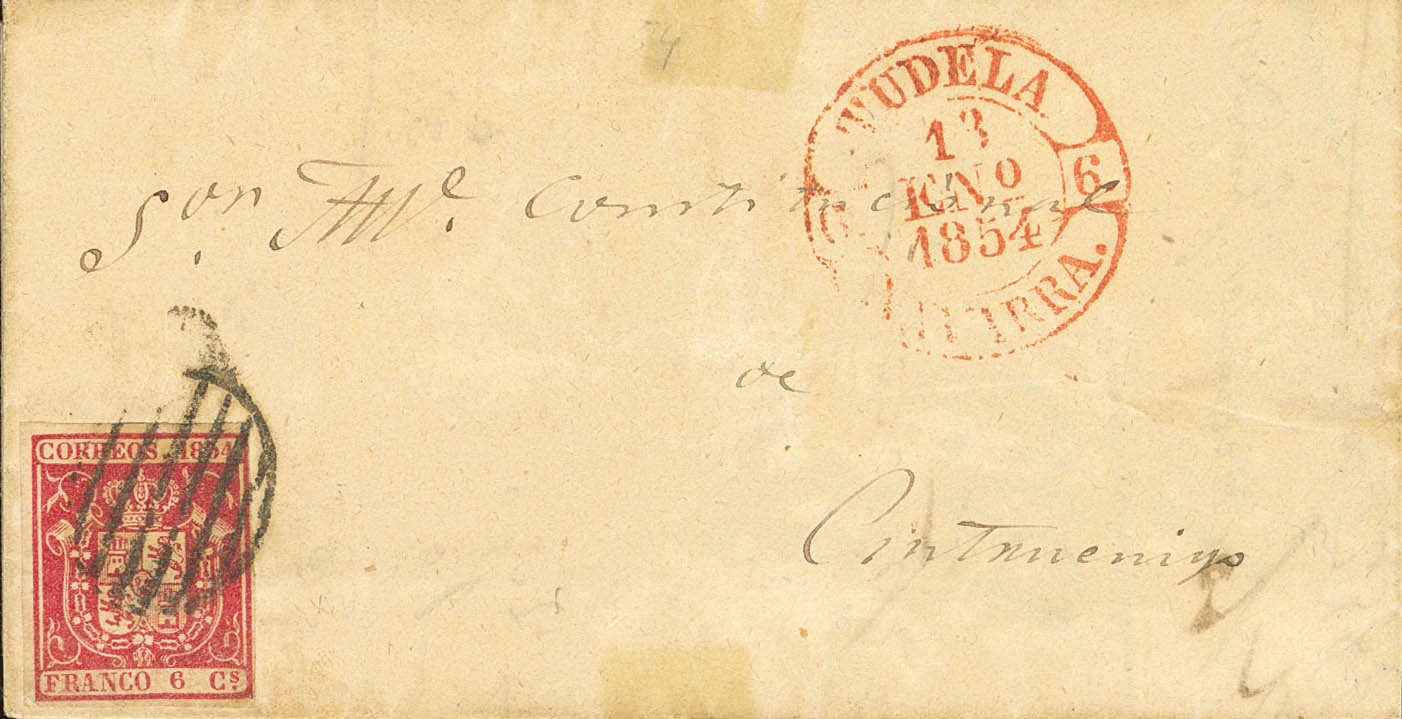 TUDELA
13
ENº
1854
6
Sor. Alle. Constitucional
de
Cintruenigo
CORREOS. 1854
FRANCO 6 Cs.